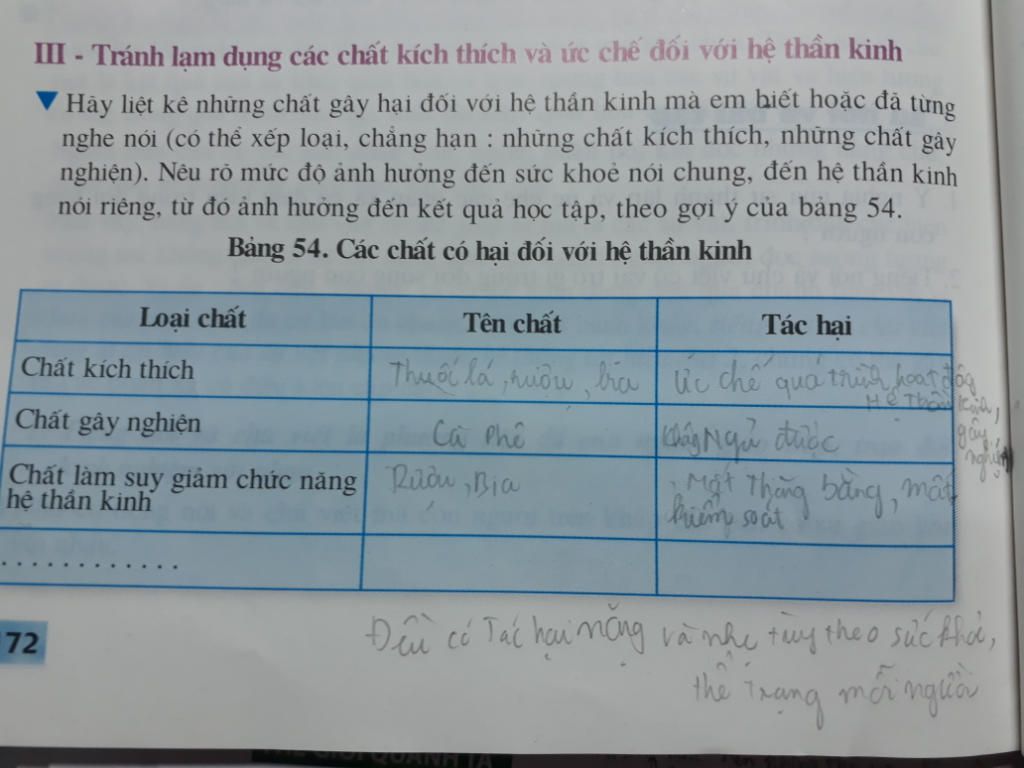 III - Tránh lạm dụng các chất kích thích và ức chế đối với hệ thần kinh
▼ Hãy liệt kê những chất gây hại đối với hệ thần kinh mà em biết hoặc đã từng
nghe nói (có thể xếp loại, chẳng hạn : những chất kích thích, những chất gây
nghiện). Nêu rõ mức độ ảnh hưởng đến sức khoẻ nói chung, đến hệ thần kinh
nói riêng, từ đó ảnh hưởng đến kết quả học tập, theo gợi ý của bảng 54.
Bảng 54. Các chất có hại đối với hệ thần kinh
Loại chất Tên chất Tác hại
Chất kích thích Thuốc lá, rượu, bia Ức chế quá trình hoạt động
Hệ Thần Kinh,
gây
nghiện
Chất gây nghiện Cà phê Không Ngủ được
Chất làm suy giảm chức năng Rượu, Bia , Mất Thăng bằng, mất
hệ thần kinh kiểm soát
. . . . . . . . . . . .
72
Đều có Tác hại nặng và nhẹ tùy theo sức khỏe,
thể Trạng mỗi người